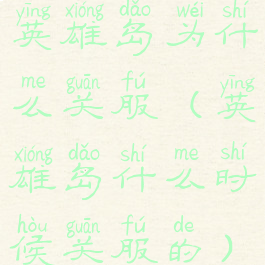 yīng xióng dǎo wéi shí
英雄岛为什
me guān fú yīng
么关服（英
xióng dǎo shí me shí
雄岛什么时
hòu guān fú de
候关服的）